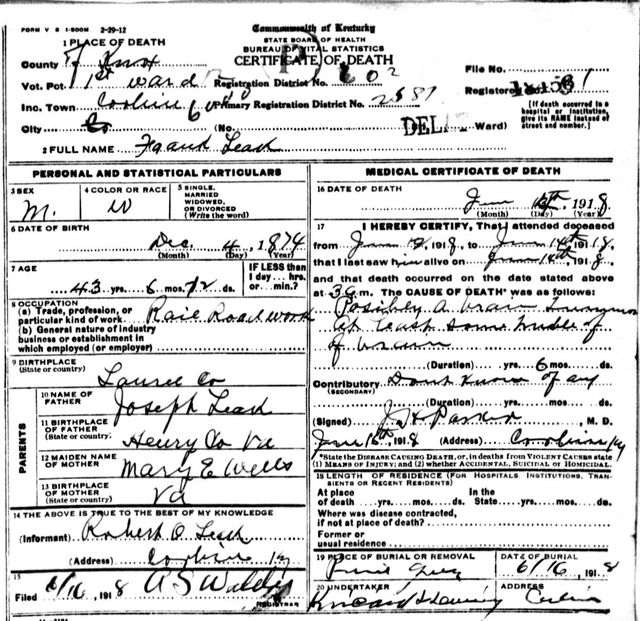 FORM V S 1-500M 2-29-12
Commonwealth of Kentucky
STATE BOARD OF HEALTH
BUREAU OF VITAL STATISTICS
CERTIFICATE OF DEATH
1 PLACE OF DEATH
County of Knox
Vot. Pct. 1st ward Registration District No.
File No.
Inc. Town Corbin Primary Registration District No.
Registered No.
[If death occurred in a hospital or institution, give its NAME instead of street and number.]
City (No. Ward)
2 FULL NAME Frank Leash
PERSONAL AND STATISTICAL PARTICULARS
3 SEX M.
4 COLOR OR RACE W
5 SINGLE, MARRIED WIDOWED, OR DIVORCED (Write the word)
6 DATE OF BIRTH
Dec. 4, 1874
(Month) (Day) (Year)
7 AGE
43 yrs. 6 mos. 12 ds.
IF LESS than 1 day ... hrs. or ... min?
8 OCCUPATION
(a) Trade, profession, or particular kind of work Rail Road work
(b) General nature of industry business or establishment in which employed (or employer)
9 BIRTHPLACE
(State or country) Laurel Co
PARENTS
10 NAME OF FATHER Joseph Leash
11 BIRTHPLACE OF FATHER (State or country) Henry Co Va
12 MAIDEN NAME OF MOTHER Mary E Wells
13 BIRTHPLACE OF MOTHER (State or country) Va
14 THE ABOVE IS TRUE TO THE BEST OF MY KNOWLEDGE
(Informant) Robert O. Leash
(Address) Corbin Ky
15
Filed 6/16, 1918
REGISTRAR
MEDICAL CERTIFICATE OF DEATH
16 DATE OF DEATH
June 191 8
(Month) (Day) (Year)
17 I HEREBY CERTIFY, That I attended deceased
from June 12, 1918, to June 14th 1918,
that I last saw him alive on June 14th, 1918,
and that death occurred on the date stated above
at m. The CAUSE OF DEATH* was as follows:
Possibly a brain
at least some
(Duration) yrs. 6 mos. ds.
Contributory Dont know of any
(SECONDARY)
(Duration) yrs. mos. ds.
(Signed) Parker, M. D.
June 16th, 1918 (Address) Corbin Ky
*State the DISEASE CAUSING DEATH, or, in deaths from VIOLENT CAUSES state (1) MEANS OF INJURY; and (2) whether ACCIDENTAL, SUICIDAL or HOMICIDAL.
18 LENGTH OF RESIDENCE (FOR HOSPITALS, INSTITUTIONS, TRANSIENTS OR RECENT RESIDENTS)
At place of death yrs. mos. ds. In the State yrs. mos. ds.
Where was disease contracted, if not at place of death?
Former or usual residence
19 PLACE OF BURIAL OR REMOVAL
DATE OF BURIAL 6/16, 1918
20 UNDERTAKER
ADDRESS Corbin